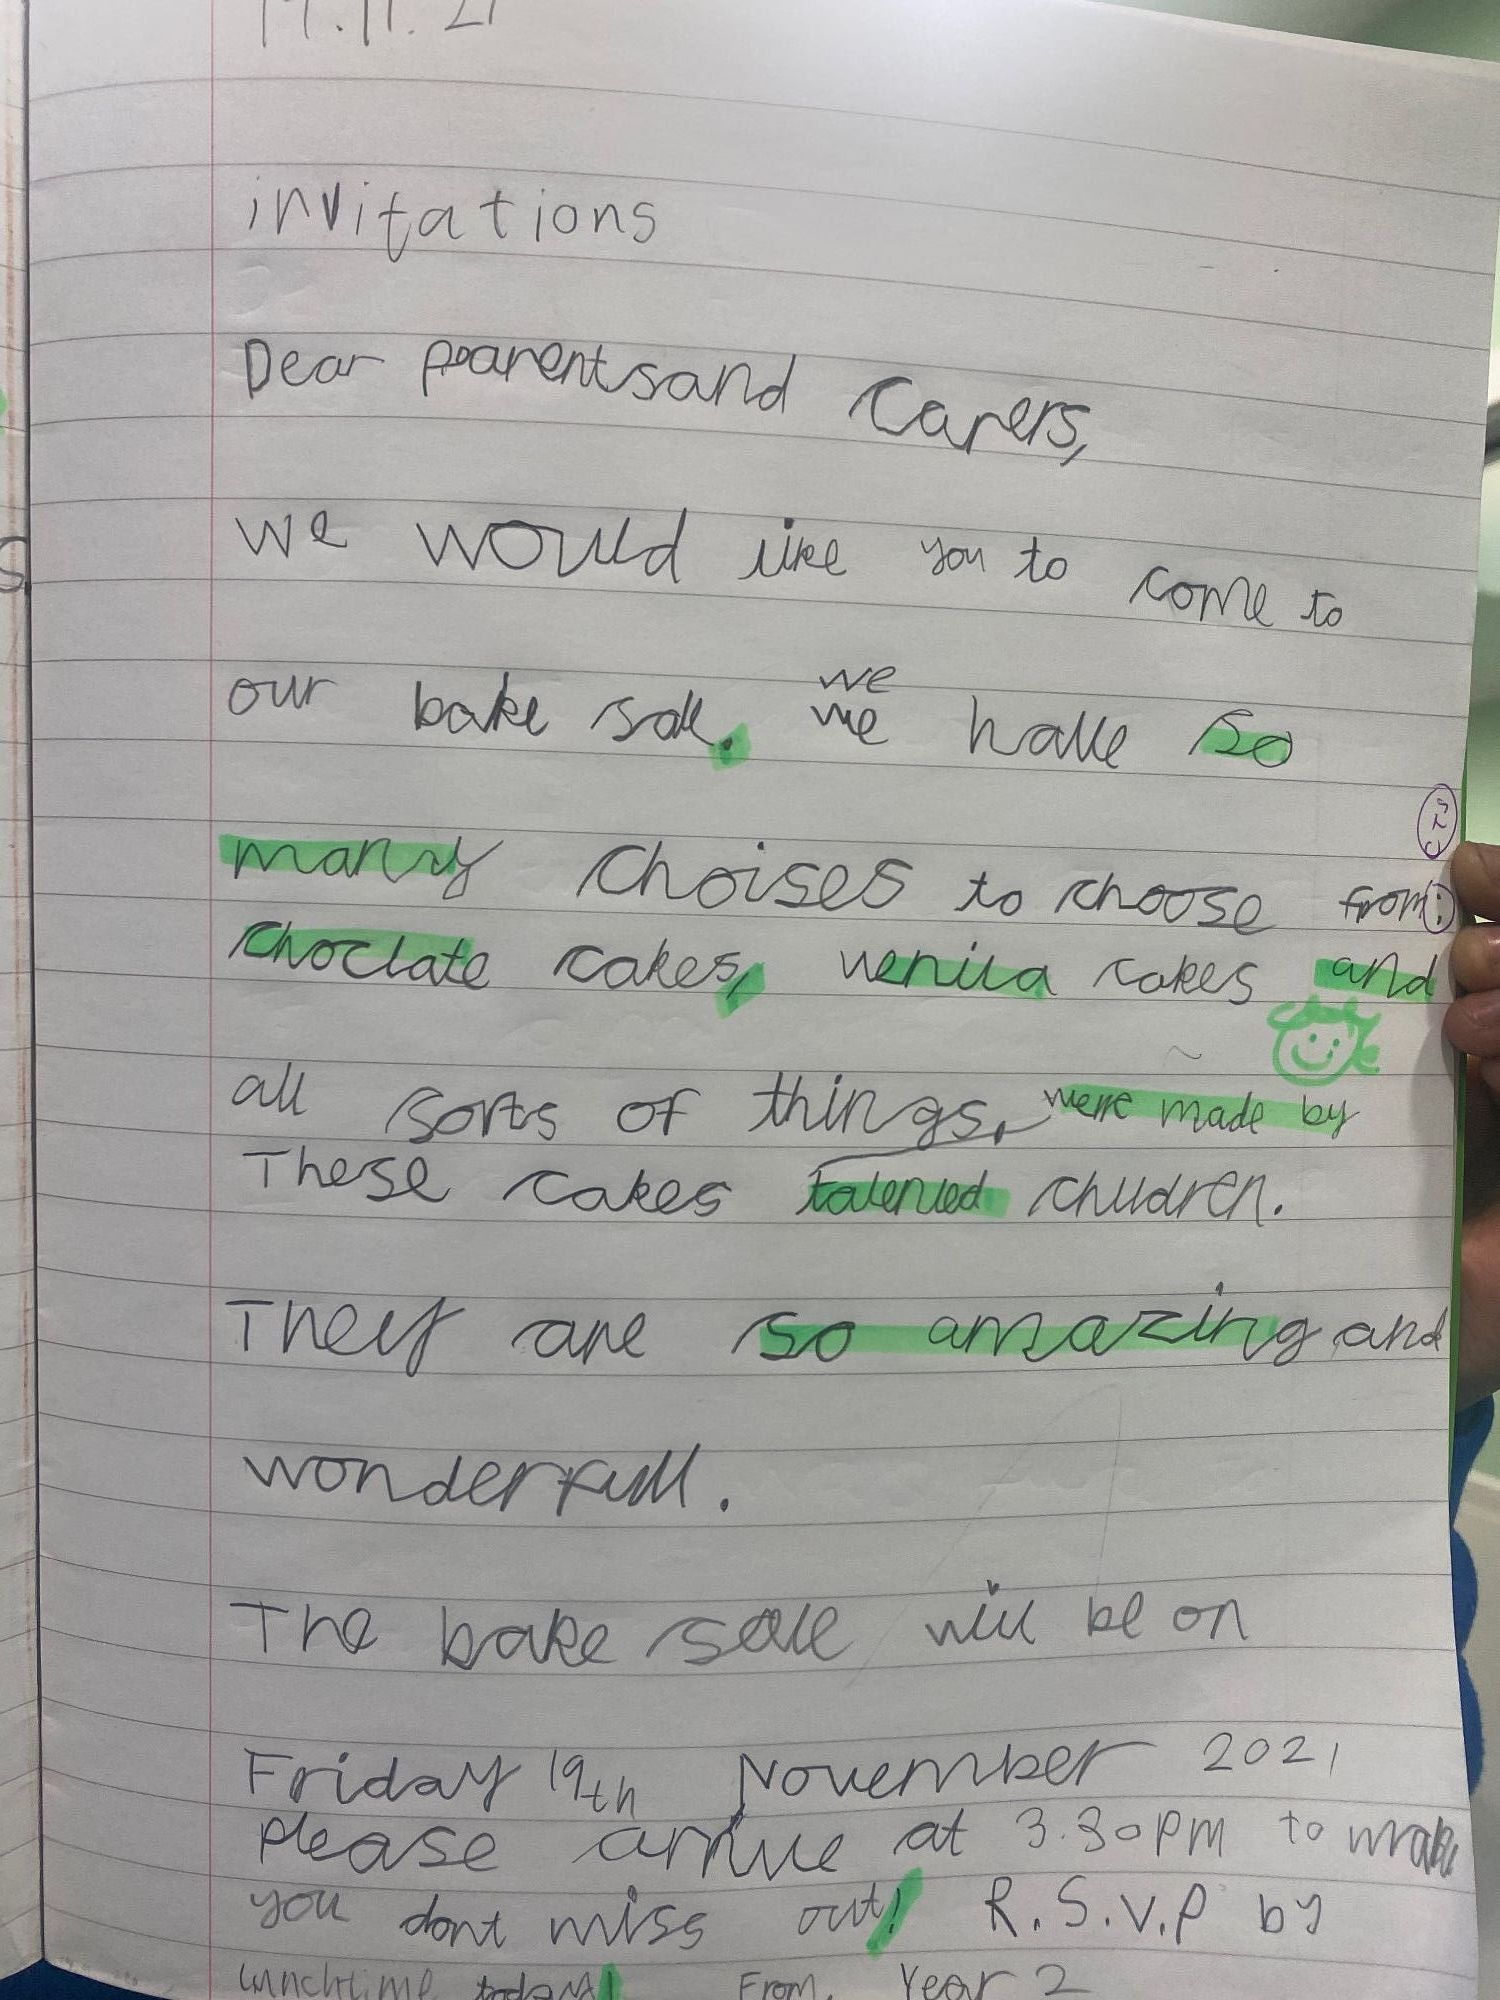 invitations
Dear parents and Carers,
we would like you to come to
our bake sale. we
we have so
many choises to choose from:
choclate cakes, venila cakes and
all sorts of things. were made by
These cakes talented children.
They are so amazing and
wonderfull.
The bake sale will be on
Friday 19th November 2021
please arrive at 3.30pm to make
you dont miss out! R.S.V.P by
lunchtime today! From, Year 2